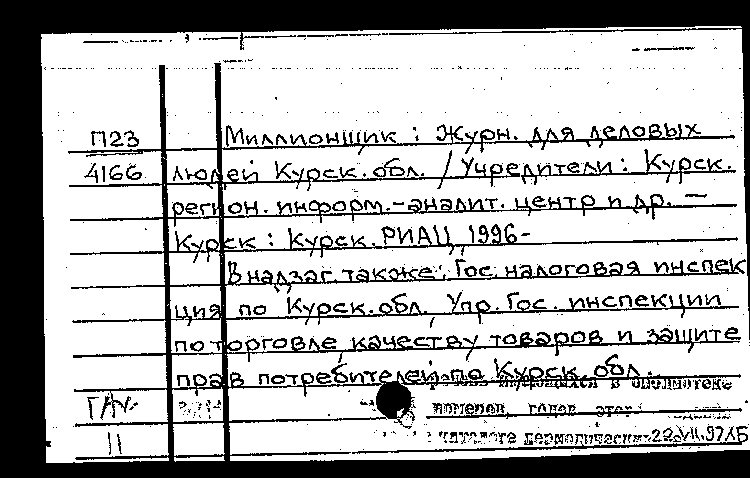 П23 Миллионщик : Журн. для деловых
4166 людей Курск. обл. / Учредители: Курск.
регион. информ.-аналит. центр и др. —
Курск : Курск. РИАЦ, 1996-
В надзаг. также: Гос. налоговая инспек
ция по Курск. обл., Упр. Гос. инспекции
по торговле, качеству товаров и защите
прав потребителей по Курск. обл.
имеющихся в библиотеке
номеров, годов этого
11 каталоге периодических 22.VII.97